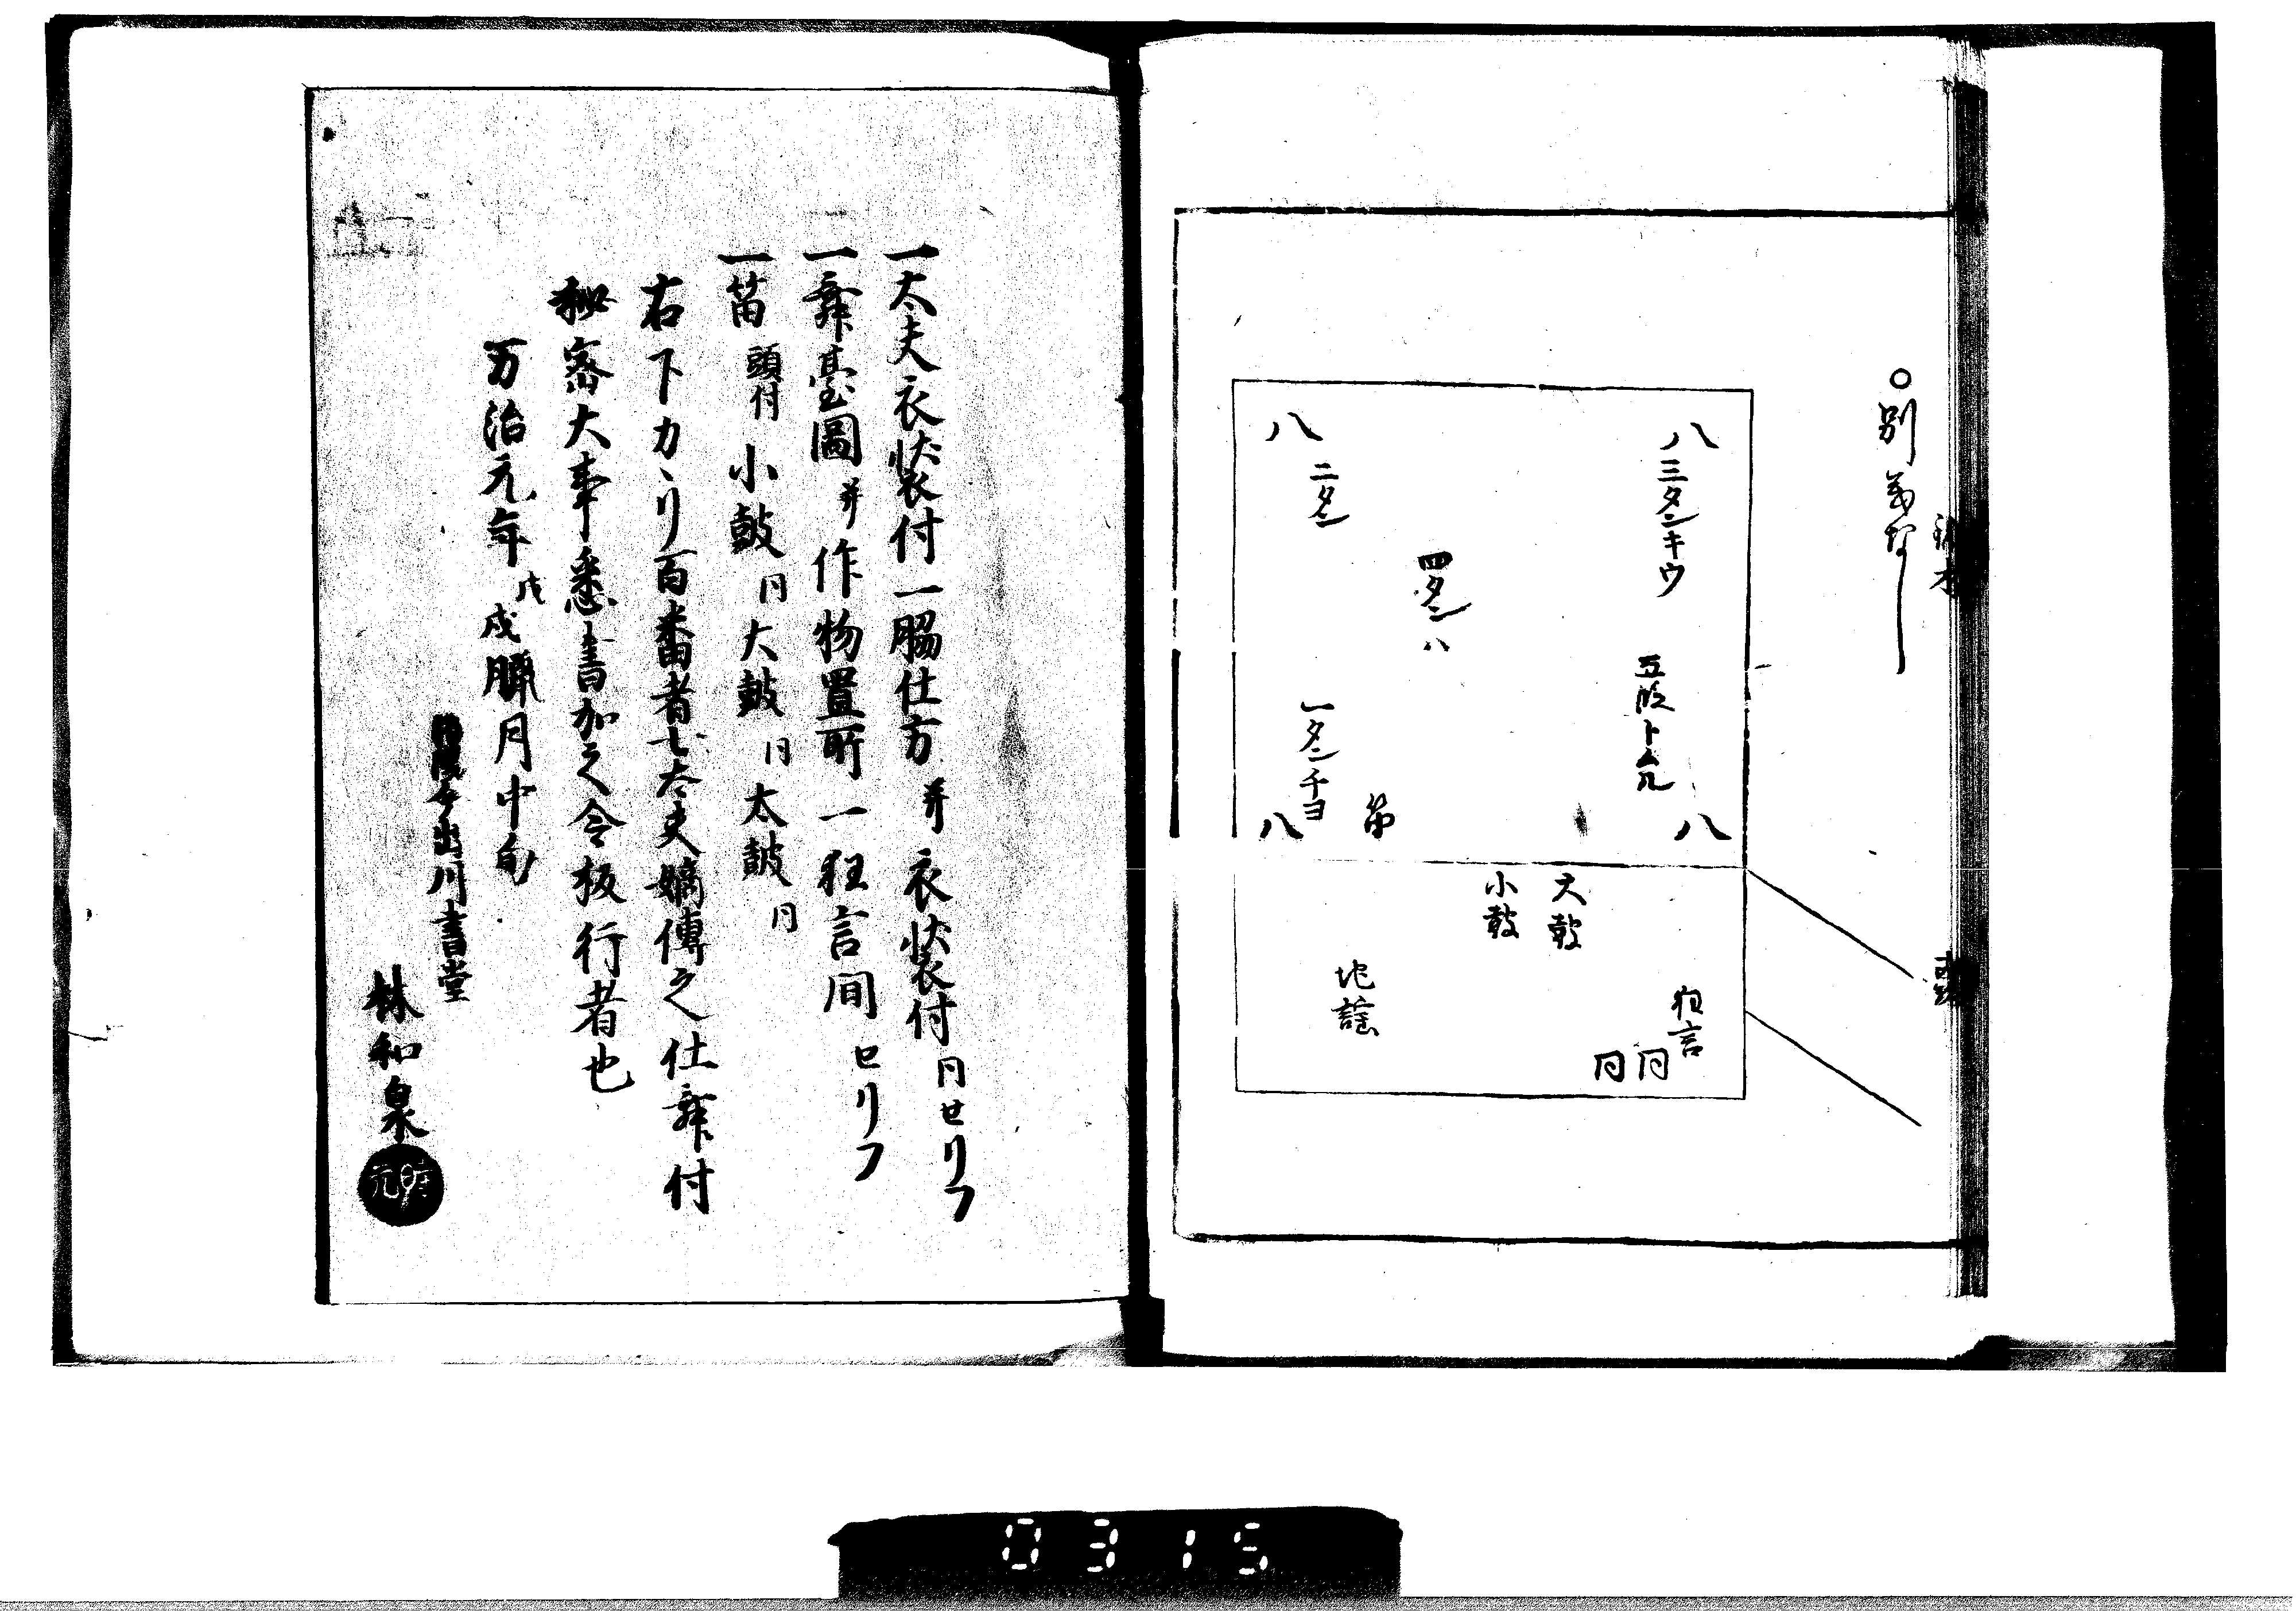 ○別義なし
八
三タンキウ
五段トム几
八
四タン
八
八
二タン
一タンチヨ
八
笛
大鼓
小鼓
狂言
同
同
地謡
一太夫衣装付一脇仕方并衣装付同せリフ
一舞臺圖并作物置所一狂言間セリフ
一笛頭付小鼓同大鼓同太鼓同
右下カヽリ百番者七太夫嫡傳之仕舞付
秘密大事悉書加之令板行者也
万治元年戊戌臘月中旬
今出川書堂
林和泉
0315